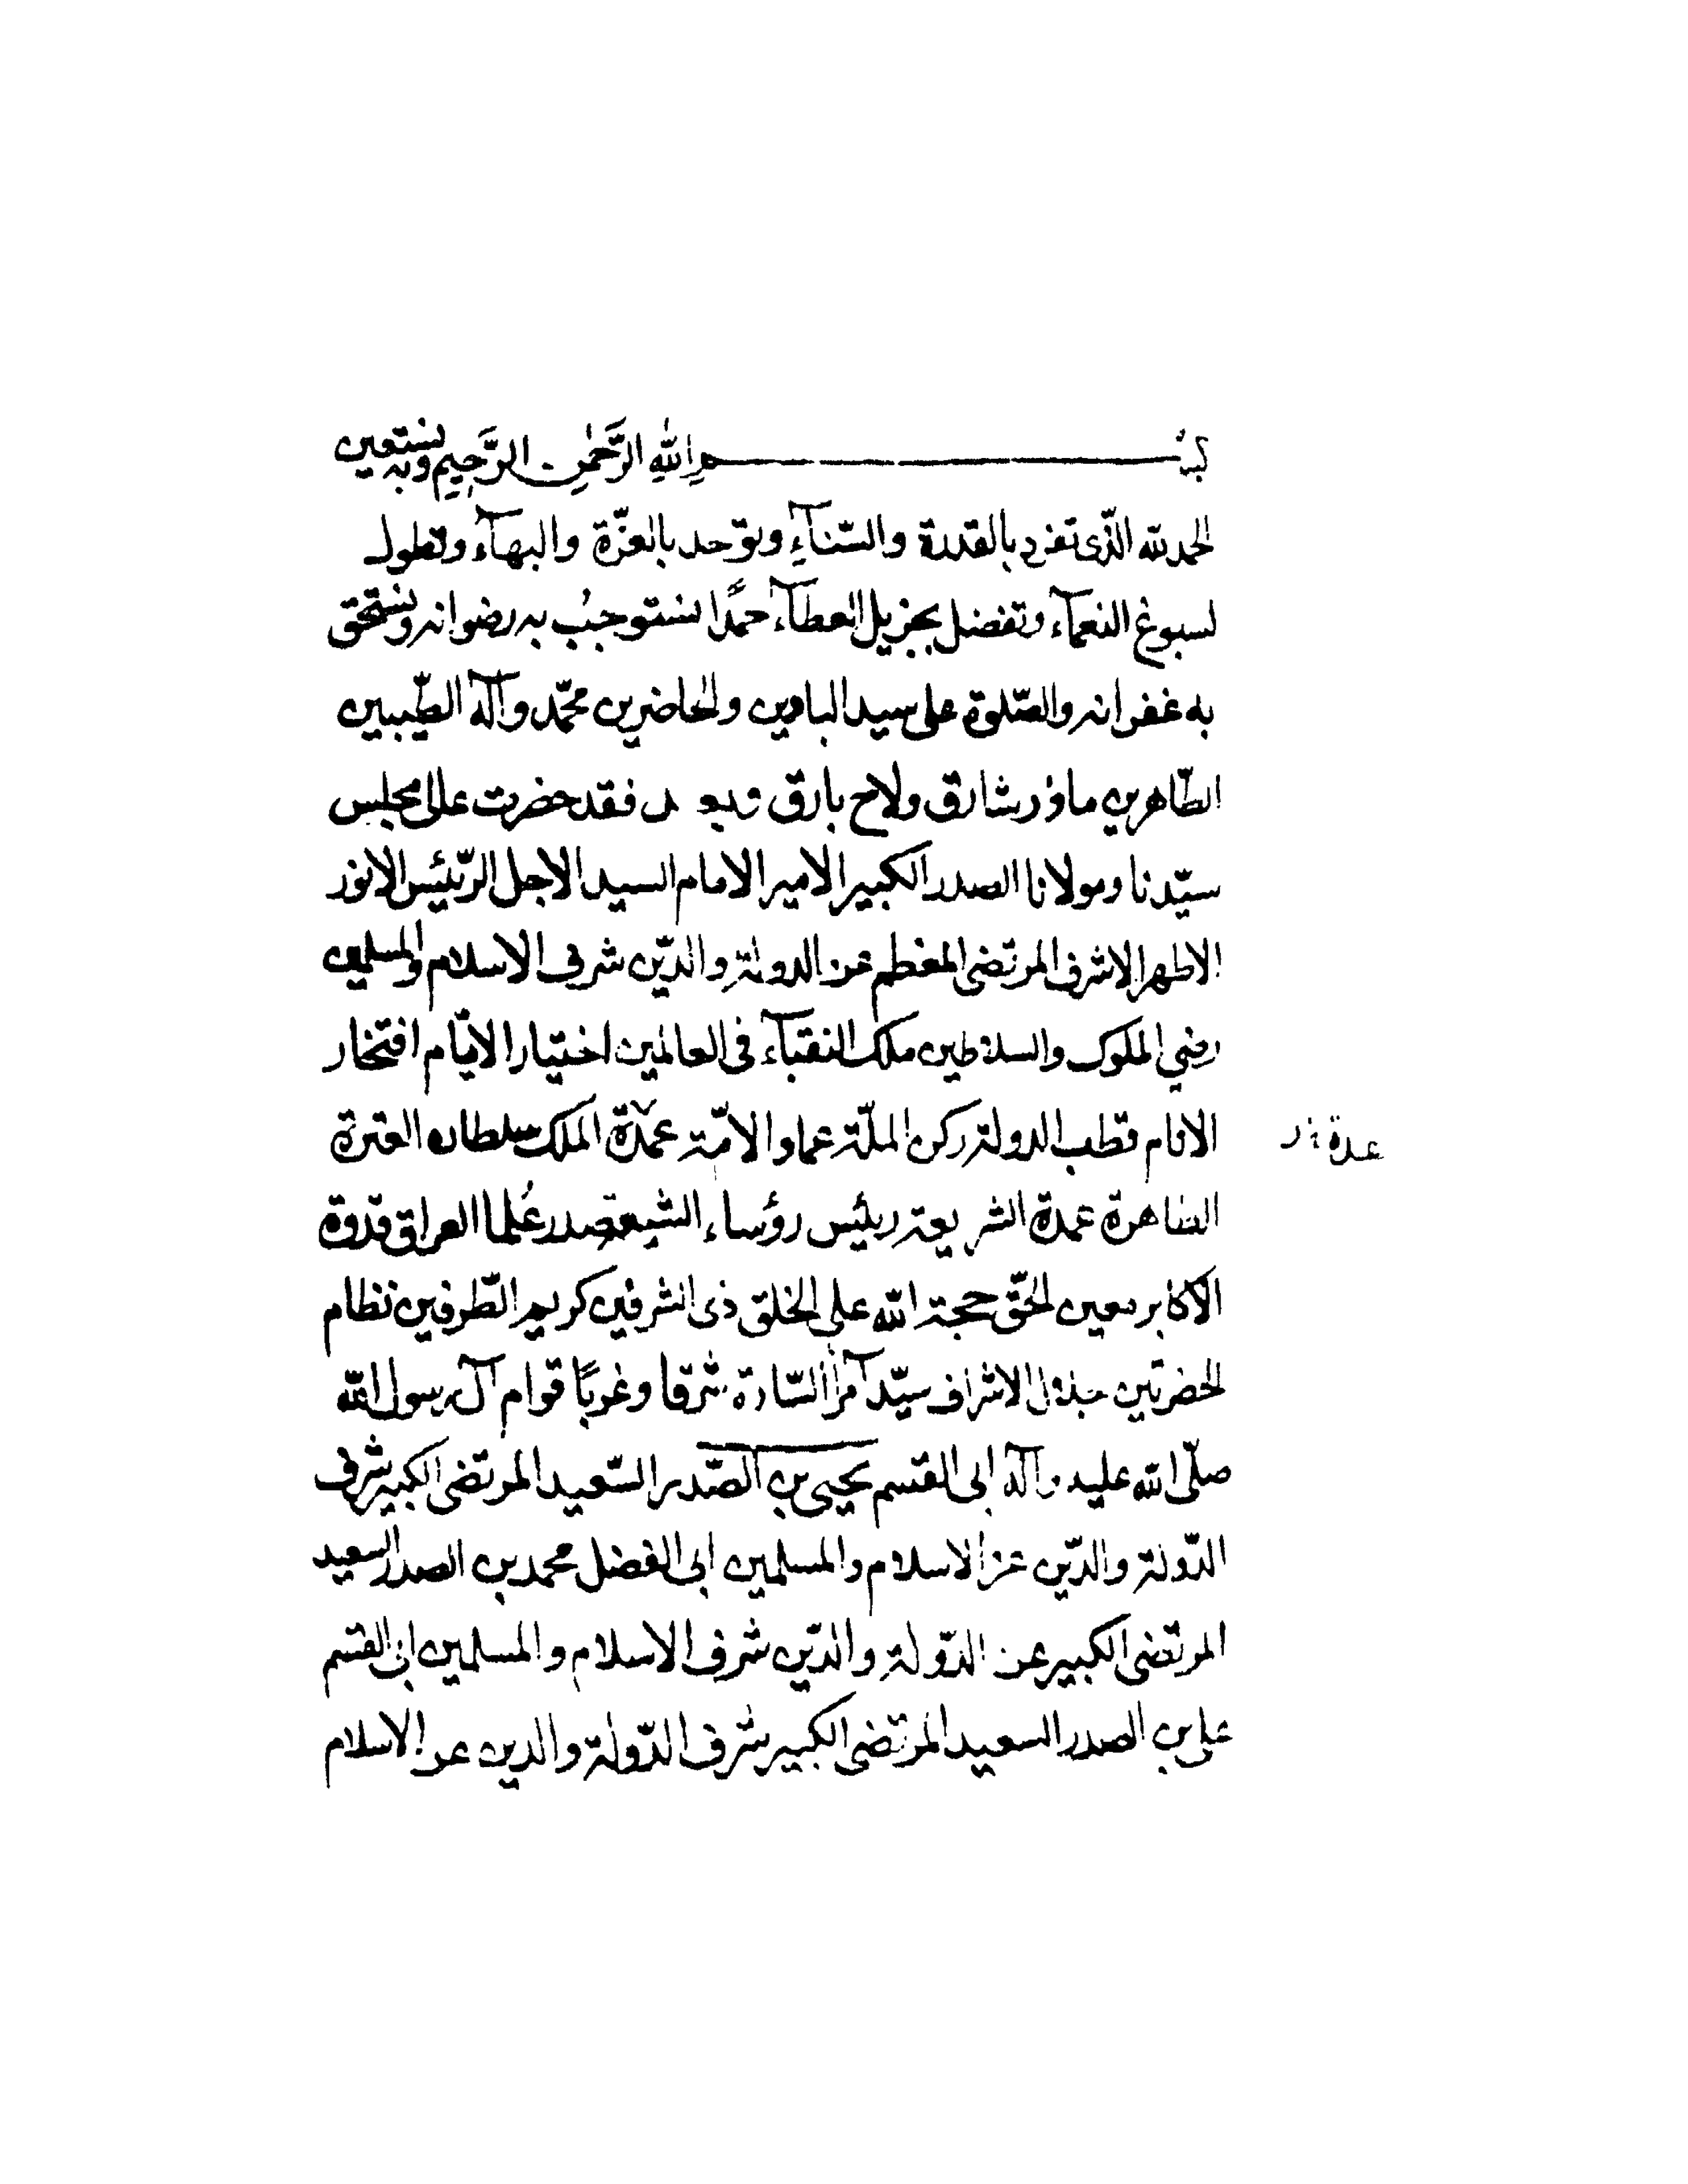 بسم الله الرَّحمٰن الرَّحِيمِ وبه نستعين
الحمد لله الّذى تفرد بالقدرة والسّنآءِ وتوّحد بالعزّة والبهآء وتطول
لسبوغ النعمآء وتفضل بجزيل العطآء حمدًا نستوجبُ به رضوانه ونستحقّ
به غفرانه والصّلوة على سيد البادين والحاضرين محمّد وآله الطّيبين
الطّاهرين ما ذر شارق ولاح بارق وبعد فقد حضرت عالى مجلس
سيّدنا ومولانا الصدر الكبير الامير الامام السيد الاجل الرّئيس الانور
الاطهر الاشرف المرتضى المعظم عز الدولة والدّين شرف الاسلام والمسلمين
رضي الملوك والسلاطين ملك النقبآء فى العالمين اختيار الايّام افتخار
الانام قطب الدولة ركن الملّة عماد الامّة عمدة الملك سلطان العترة
عدة : ر
الطاهرة عمدة الشريعة رئيس رؤساء الشيعة صدر عُلما العراق قدوة
الاكابر معين الحقّ حجة الله على الخلق ذى الشرفين كريم الطّرفين نظام
الحضرتين جلال الاشراف سيّد آمرآ السّادة شرقا وغربًا قوام آل رسول الله
صلّى الله عليه وآله ابى القسم يحيى بن الصّدر السّعيد المرتضى الكبير شرف
الدّولة والدّين عز الاسلام والمسلمين ابى الفضل محمد بن الصدر السعيد
المرتضى الكبير عز الدّولة والدّين شرف الاسلام والمسلمين ابى القسم
على بن الصدر السعيد المرتضى الكبير شرف الدّولة والدين عز الاسلام